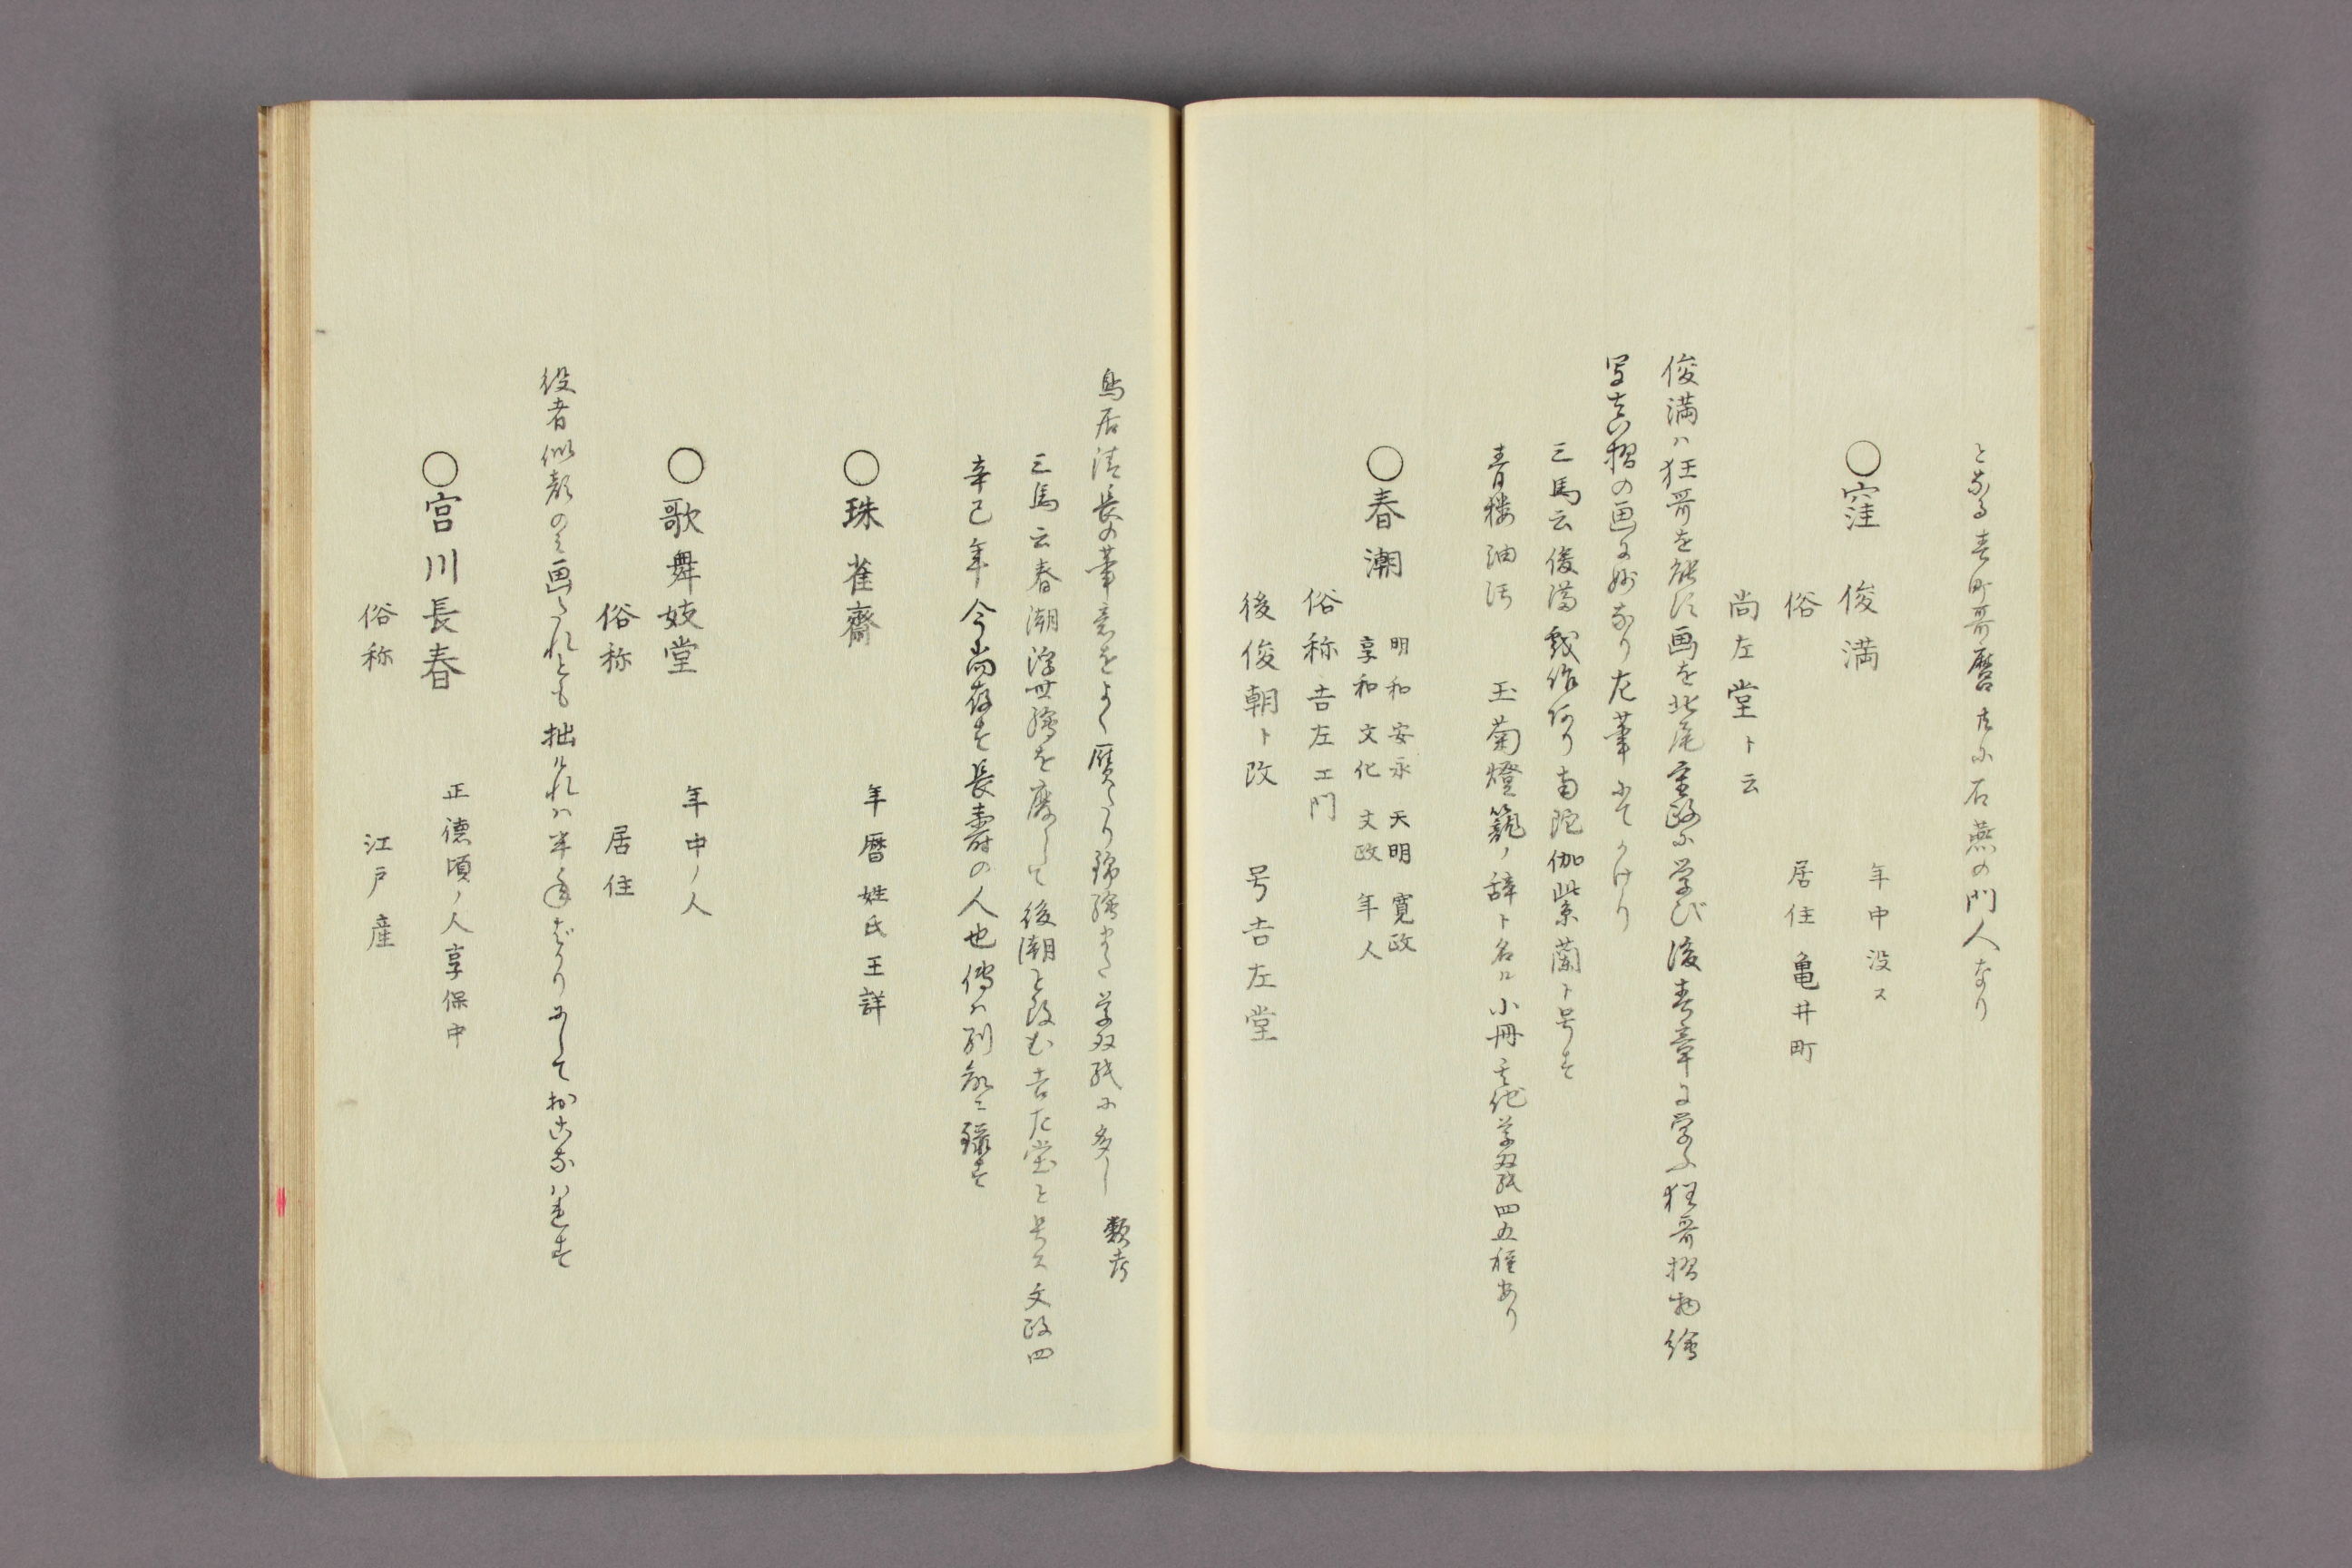 となる春町哥麿共に石燕の門人なり
○窪 俊満 年中没ス
俗 居住亀井町
尚左堂ト云
俊満ハ狂哥を能す画を北尾重政に学び後春章に学ふ狂哥摺物繪
写真摺の画に妙なり左筆にてかけり
三馬云俊満戯作アリ南陀伽紫蘭ト号す
青楼油活 玉菊燈籠ノ辞ト名ク小冊其他草双紙四五種あり
○春潮 明和 安永 天明 寛政
享和 文化 文政 年人
俗称吉左エ門
後俊朝ト改 号吉左堂
鳥居清長の筆意をよく贋たり錦繪また草双紙に多し 類考
三馬云春潮浮世繪を廃して後潮と改む吉左堂と号ス文政四
辛巳年今尚存す長壽の人也傳は別巻ニ録す
○珠雀齋 年暦姓氏王詳
○歌舞妓堂 年中ノ人
俗称 居住
役者似顔のミ画たれとも拙ケれハ半年ばかりにしておこなハれす
○宮川長春 正徳頃ノ人享保中
俗称 江戸産